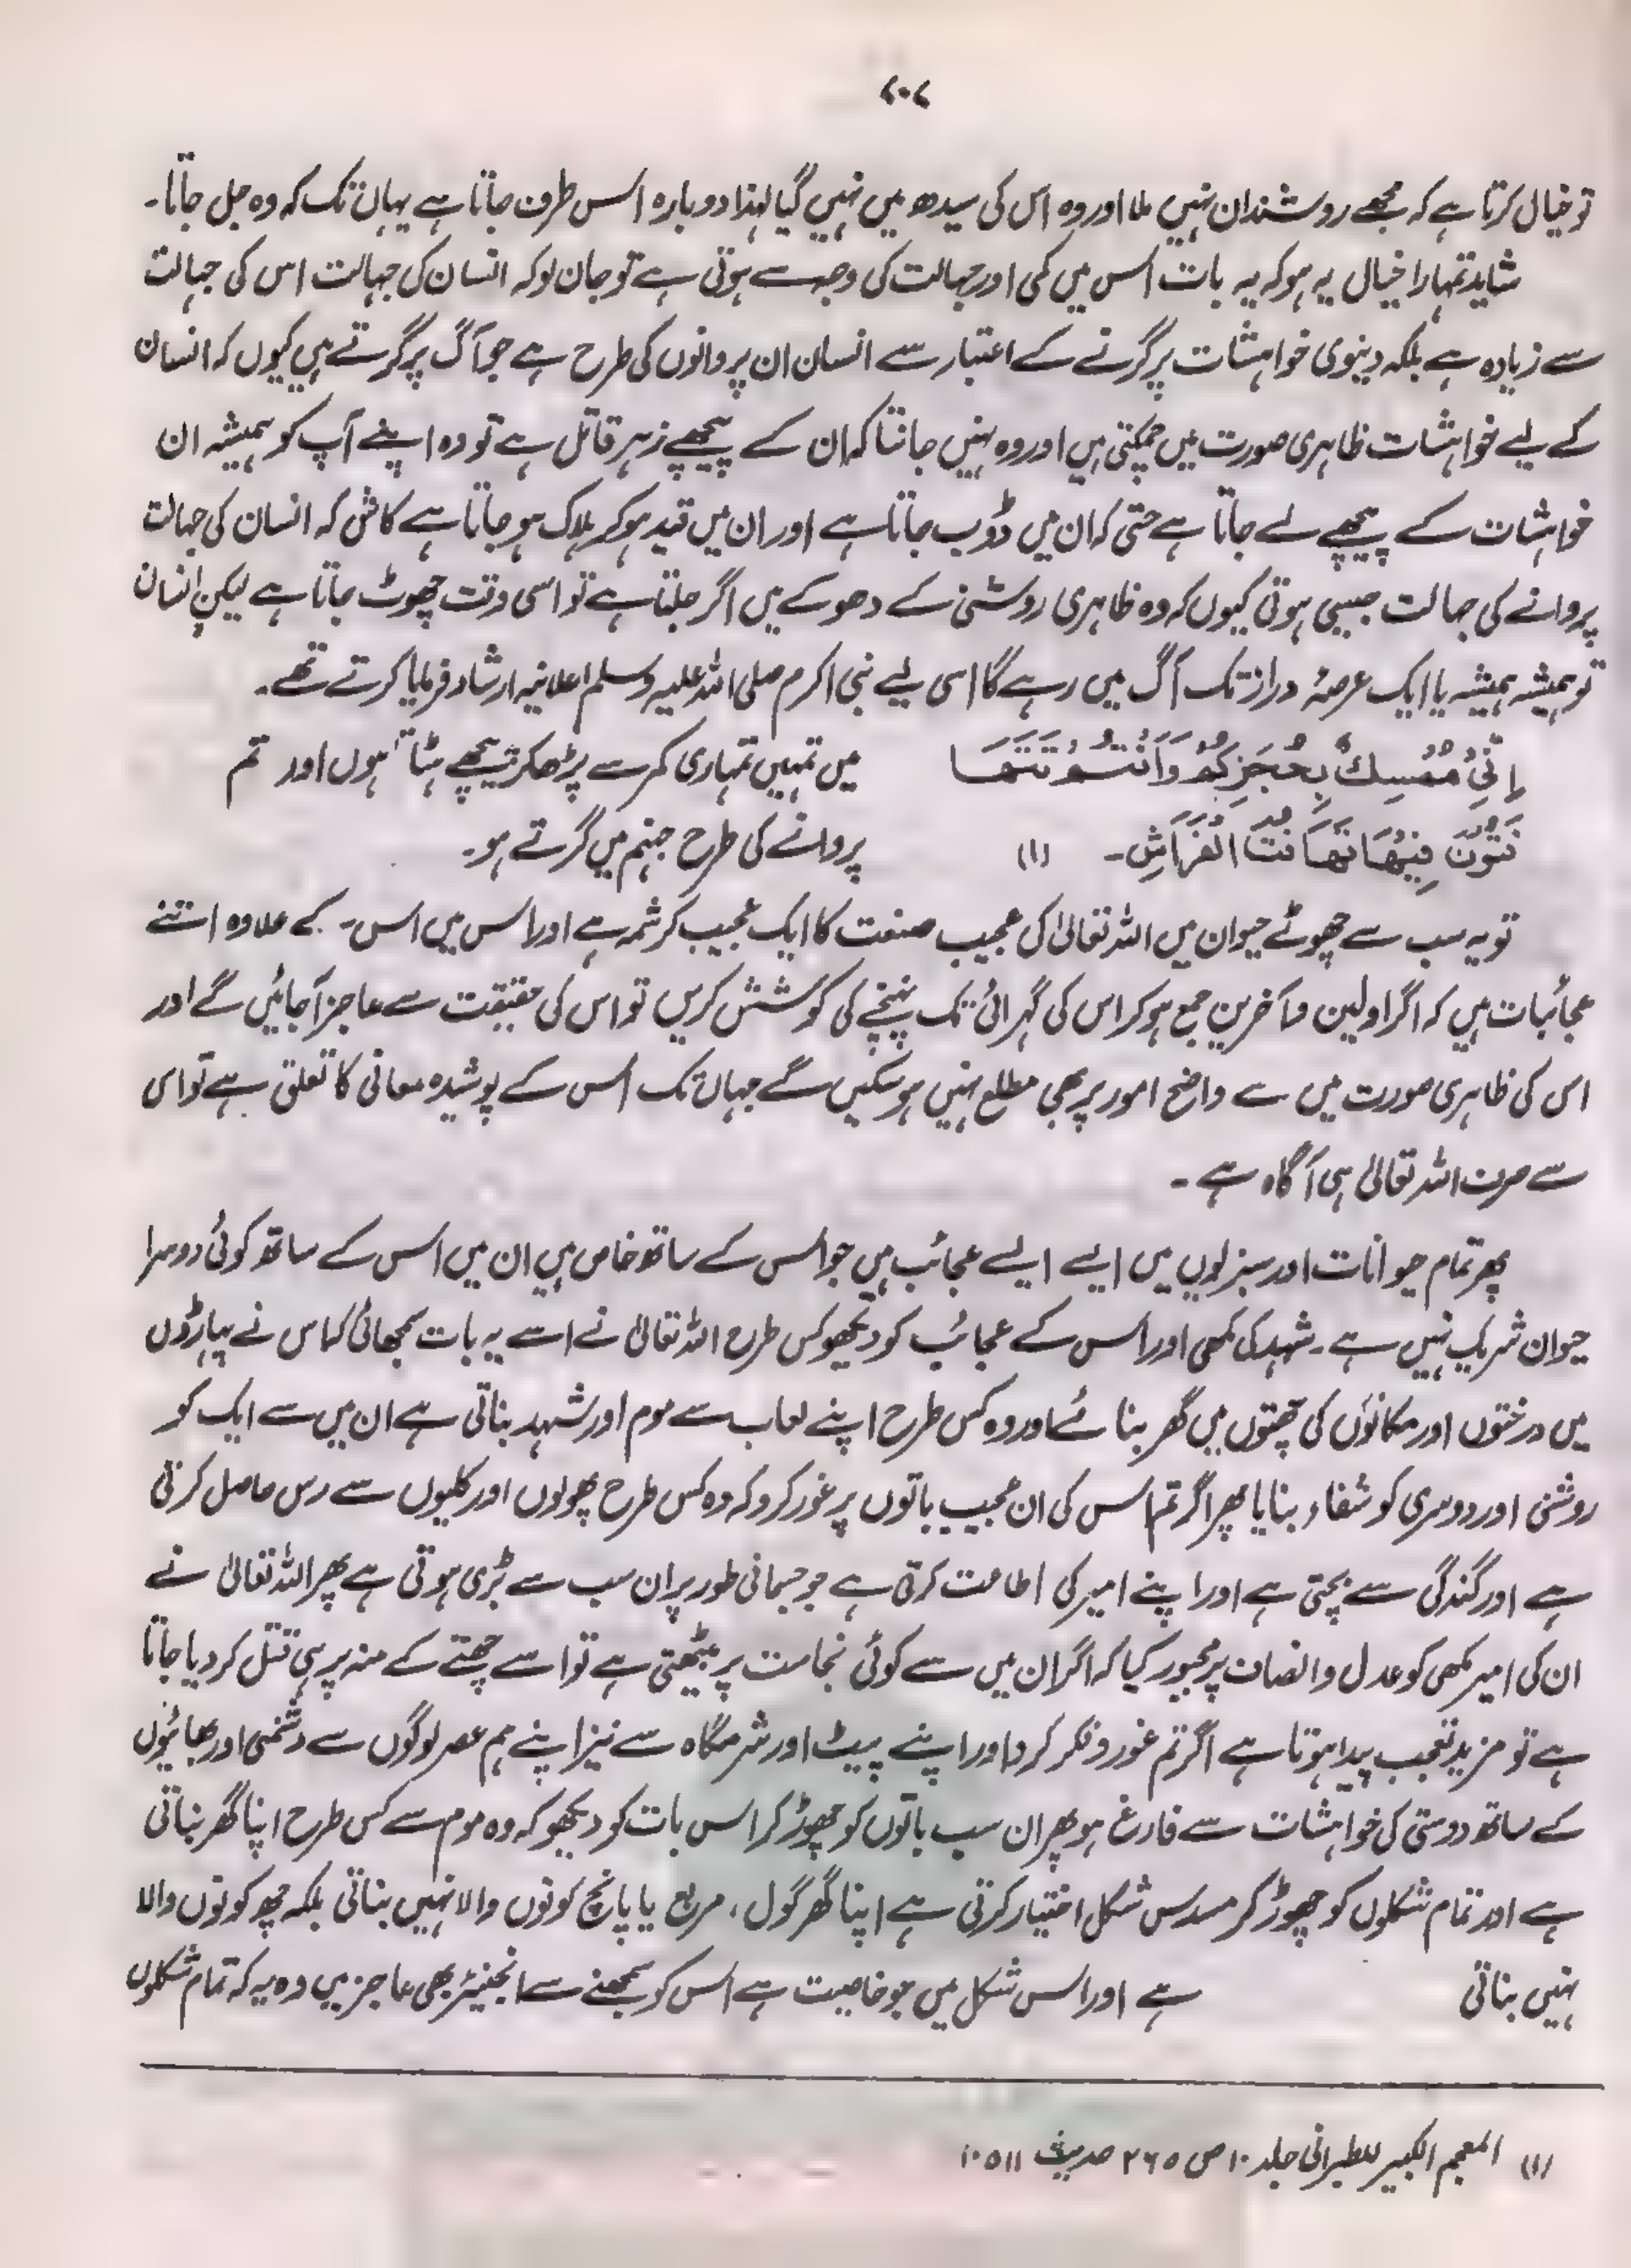 ۷۰۷
تو خیال کرتا ہے کہ مجھے روشندان نہیں ملا اور وہ اس کی سیدھ میں نہیں گیا لہٰذا دوبارہ اس طرف جاتا ہے یہاں تک کہ وہ جل جاتا۔
شاید تمہارا خیال یہ ہو کہ یہ بات اس میں کمی اور جہالت کی وجہ سے ہوتی ہے تو جان لو کہ انسان کی جہالت اس کی جہالت
سے زیادہ ہے بلکہ دینوی خواہشات پر گرنے کے اعتبار سے انسان ان پروانوں کی طرح ہے جو آگ پر گرتے ہیں کیوں کہ انسان
کے لیے خواہشات ظاہری صورت میں چمکتی ہیں اور وہ نہیں جانتا کہ ان کے پیچھے زہر قاتل ہے تو وہ اپنے آپ کو ہمیشہ ان
خواہشات کے پیچھے لے جاتا ہے حتی کہ ان میں ڈوب جاتا ہے اور ان میں قید ہو کر ہلاک ہو جاتا ہے کاش کہ انسان کی جہالت
پروانے کی جہالت جیسی ہوتی کیوں کہ وہ ظاہری روشنی کے دھوکے میں اگر جلتا ہے تو اسی وقت چھوٹ جاتا ہے لیکن انسان
تو ہمیشہ ہمیشہ یا ایک عرصۂ دراز تک آگ میں رہے گا اسی لیے نبی اکرم صلی اللہ علیہ وسلم اعلانیہ ارشاد فرمایا کرتے تھے۔
اِنِّیْ مُمْسِکٌ بِحُجَزِکُمْ وَاَنْتُمْ تَتَهَا
فَتُوْنَ فِیْهَا تَهَافُتَ الْفَرَاشِ۔ (۱)
میں تمہیں تمہاری کمر سے پڑھکر پیچھے ہٹاتا ہوں اور تم
پروانے کی طرح جہنم میں گرتے ہو۔
تو یہ سب سے چھوٹے حیوان میں اللہ تعالیٰ کی عجیب صنعت کا ایک عجیب کرشمہ ہے اور اس میں اس کے علاوہ اتنے
عجائبات ہیں کہ اگر اولین و آخرین جمع ہو کر اس کی گہرائی تک پہنچنے کی کوشش کریں تو اس کی حقیقت سے عاجز آجائیں گے اور
اس کی ظاہری صورت میں سے واضح امور پر بھی مطلع نہیں ہو سکیں گے جہاں تک اس کے پوشیدہ معانی کا تعلق ہے تو اس
سے صرف اللہ تعالیٰ ہی آگاہ ہے۔
پھر تمام حیوانات اور سبزلوں میں ایسے ایسے عجائب ہیں جو اس کے ساتھ خاص ہیں ان میں اس کے ساتھ کوئی دوسرا
حیوان شریک نہیں ہے۔ شہد کی مکھی اور اس کے عجائب کو دیکھو کس طرح اللہ تعالیٰ نے اسے یہ بات سمجھائی کہ اس نے پہاڑوں
میں درختوں اور مکانوں کی چھتوں میں گھر بنائے اور وہ کس طرح اپنے لعاب سے موم اور شہد بناتی ہے ان میں سے ایک کو
روشنی اور دوسری کو شفاء بنایا پھر اگر تم اس کی ان عجیب باتوں پر غور کرو کہ وہ کس طرح پھولوں اور کلیوں سے رس حاصل کرتی
ہے اور گندگی سے بچتی ہے اور اپنے امیر کی اطاعت کرتی ہے جو جسمانی طور پر ان سب سے بڑی ہوتی ہے پھر اللہ تعالیٰ نے
ان کی امیر مکھی کو عدل و انصاف پر مجبور کیا کہ اگر ان میں سے کوئی نجاست پر بیٹھتی ہے تو اسے چھتے کے منہ پر ہی قتل کر دیا جاتا
ہے تو مزید تعجب پیدا ہوتا ہے اگر تم غور و فکر کرو اور اپنے پیٹ اور شرمگاہ سے نیز اپنے ہم عصر لوگوں سے دشمنی اور بھائیوں
کے ساتھ دوستی کی خواہشات سے فارغ ہو پھر ان سب باتوں کو چھوڑ کر اس بات کو دیکھو کہ وہ موم سے کس طرح اپنا گھر بناتی
ہے اور تمام شکلوں کو چھوڑ کر مسدس شکل اختیار کرتی ہے اپنا گھر گول، مربع یا پانچ کونوں والا نہیں بناتی بلکہ چھ کونوں والا
نہیں بناتی ہے اور اس شکل میں جو خاصیت ہے اس کو سمجھنے سے انجنیئر بھی عاجز ہیں وہ یہ کہ تمام شکلوں
(۱) المعجم الکبیر للطبرانی جلد ۱۰ ص ۲۶۵ حدیث ۱۰۵۱۱